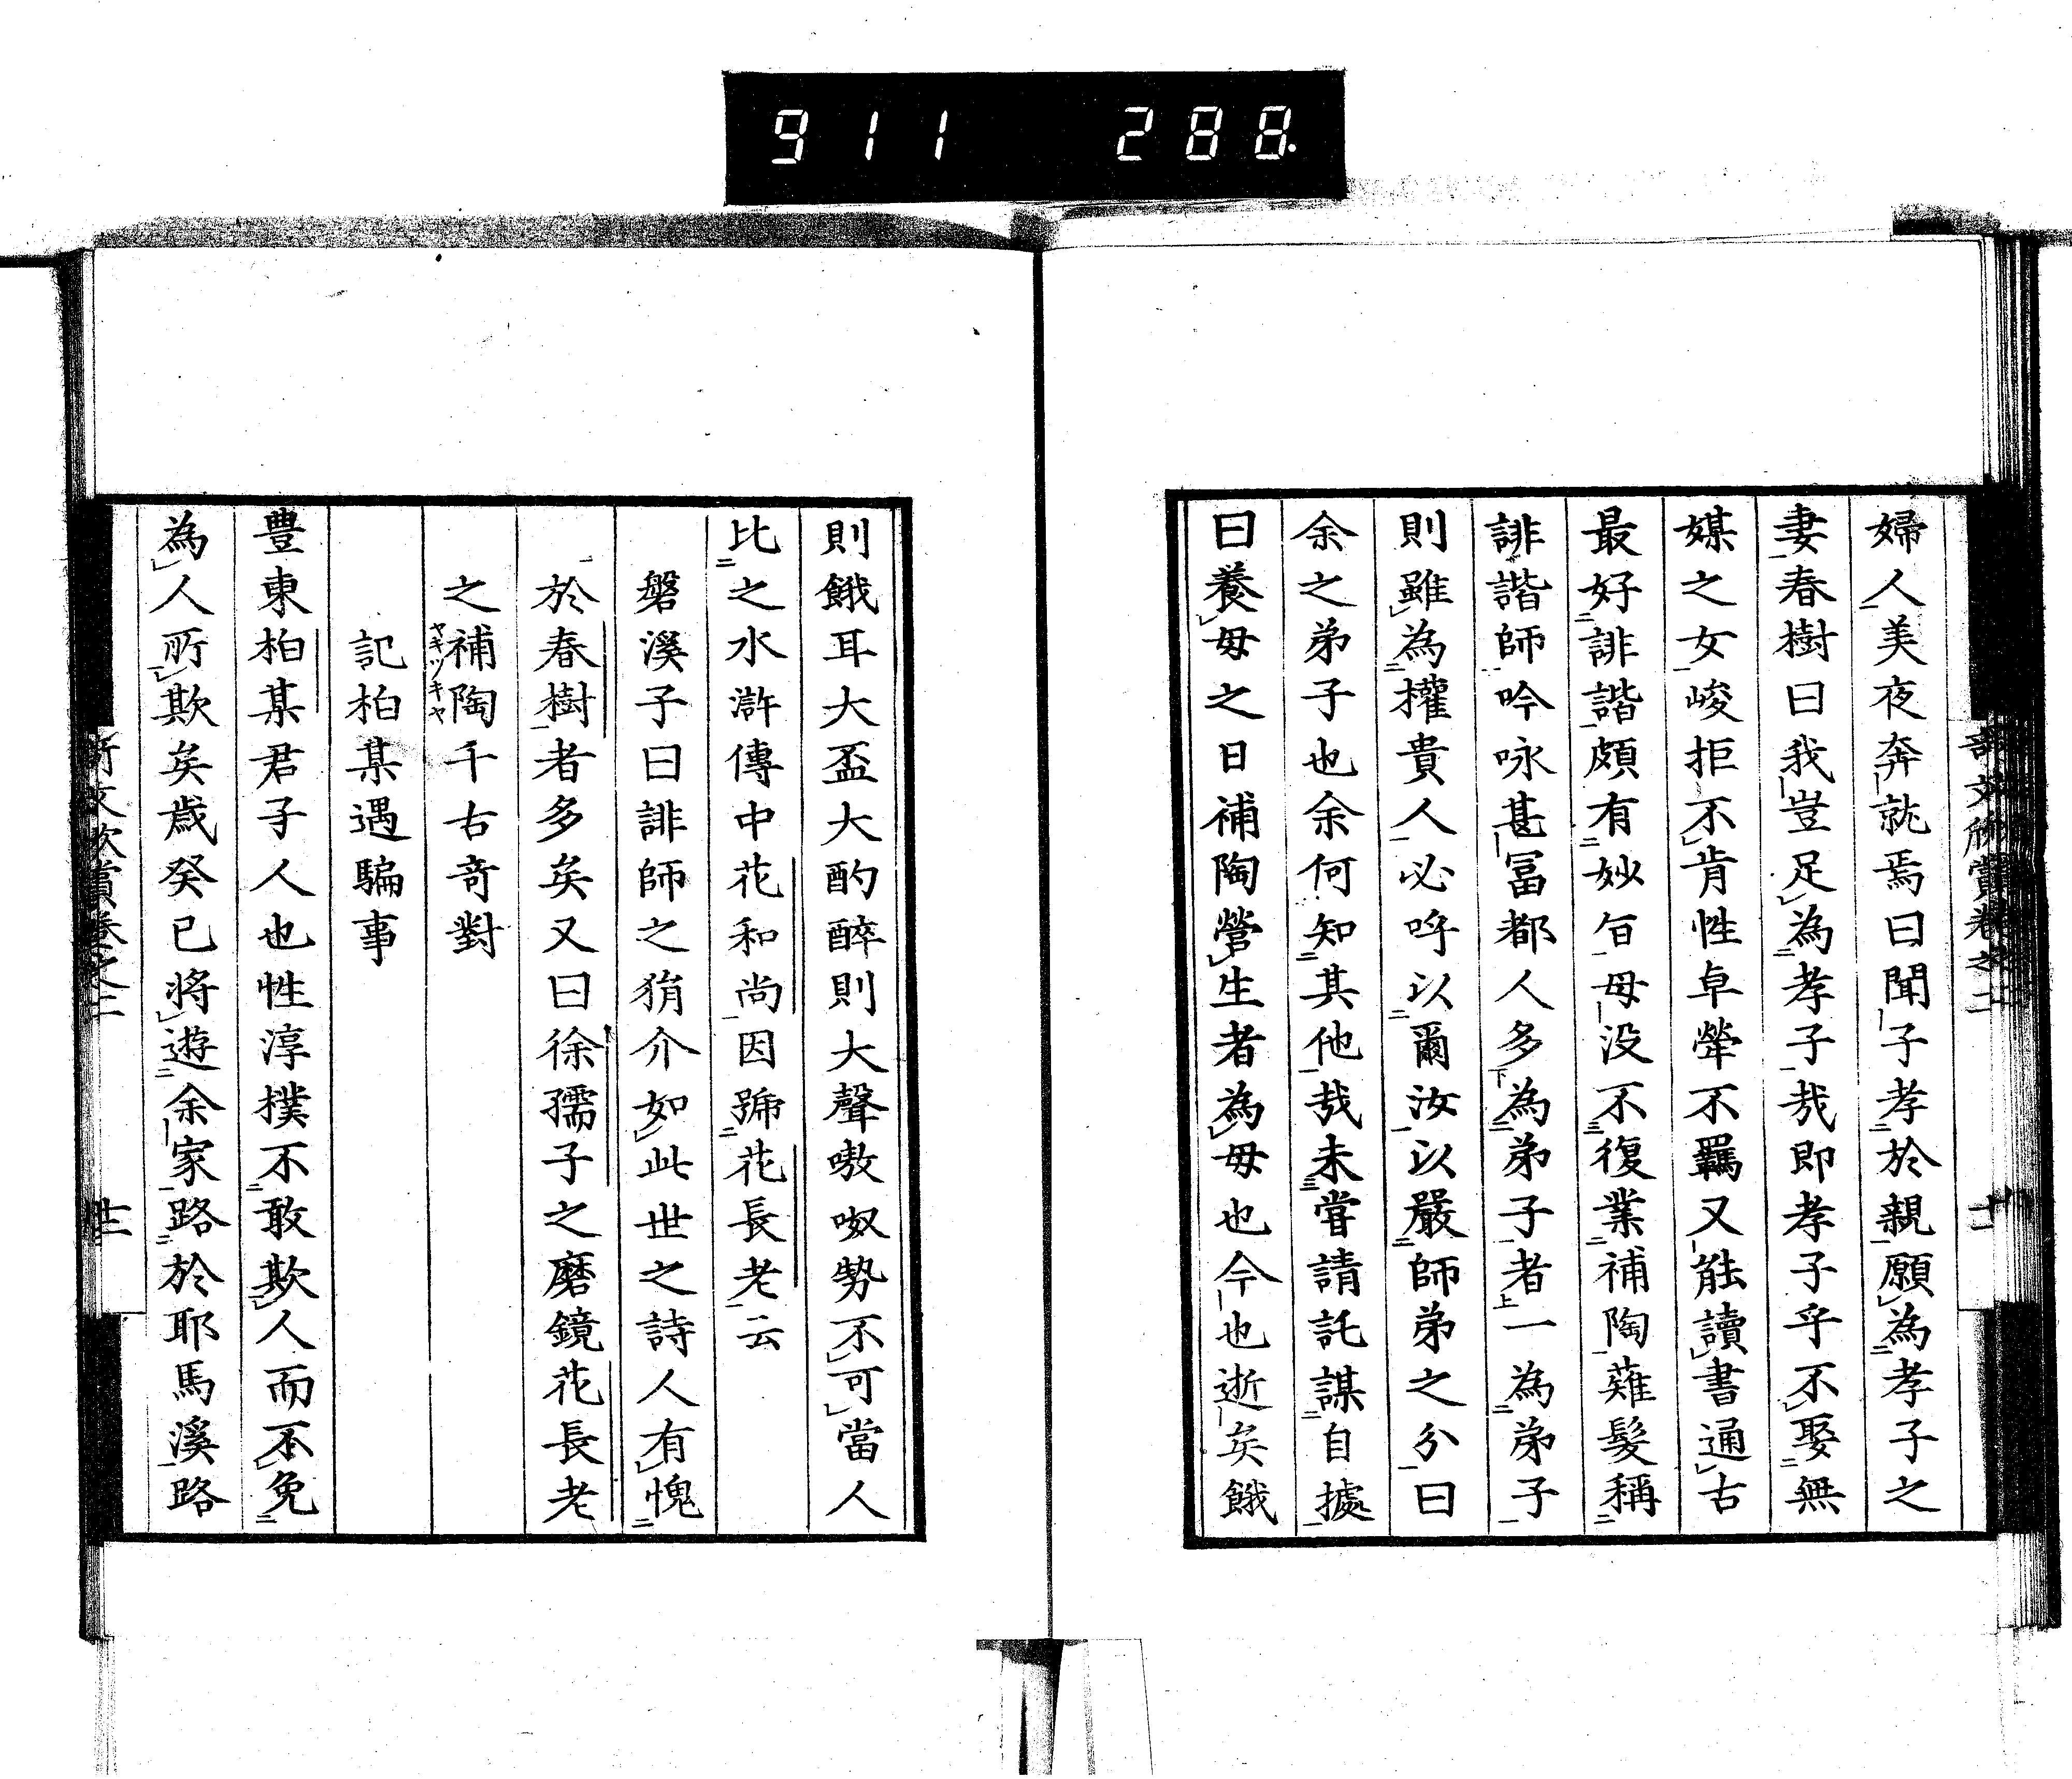 911 288.
婦人美夜奔就焉曰聞子孝於親願為孝子之
妻春樹曰我豈足為孝子哉即孝子乎不娶無
媒之女峻拒不肯性卓犖不羈又能讀書通古
最好誹諧頗有妙旨母没不復業補陶薙髮稱
誹諧師吟咏甚冨都人多為弟子者一為弟子
則雖為權貴人必呼以爾汝以嚴師弟之分曰
余之弟子也余何知其他哉未嘗請託謀自據
曰養母之日補陶營生者為母也今也逝矣餓
則餓耳大盃大酌醉則大聲嗷呶勢不可當人
比之水滸傳中花和尚因號花長老云
磐溪子曰誹師之狷介如此世之詩人有愧
於春樹者多矣又曰徐孺子之磨鏡花長老
之補陶千古奇對
ヤキツキヤ
記柏某遇騙事
豊東柏某君子人也性淳樸不敢欺人而不免
為人所欺矣歳癸已將遊余家路於耶馬溪路